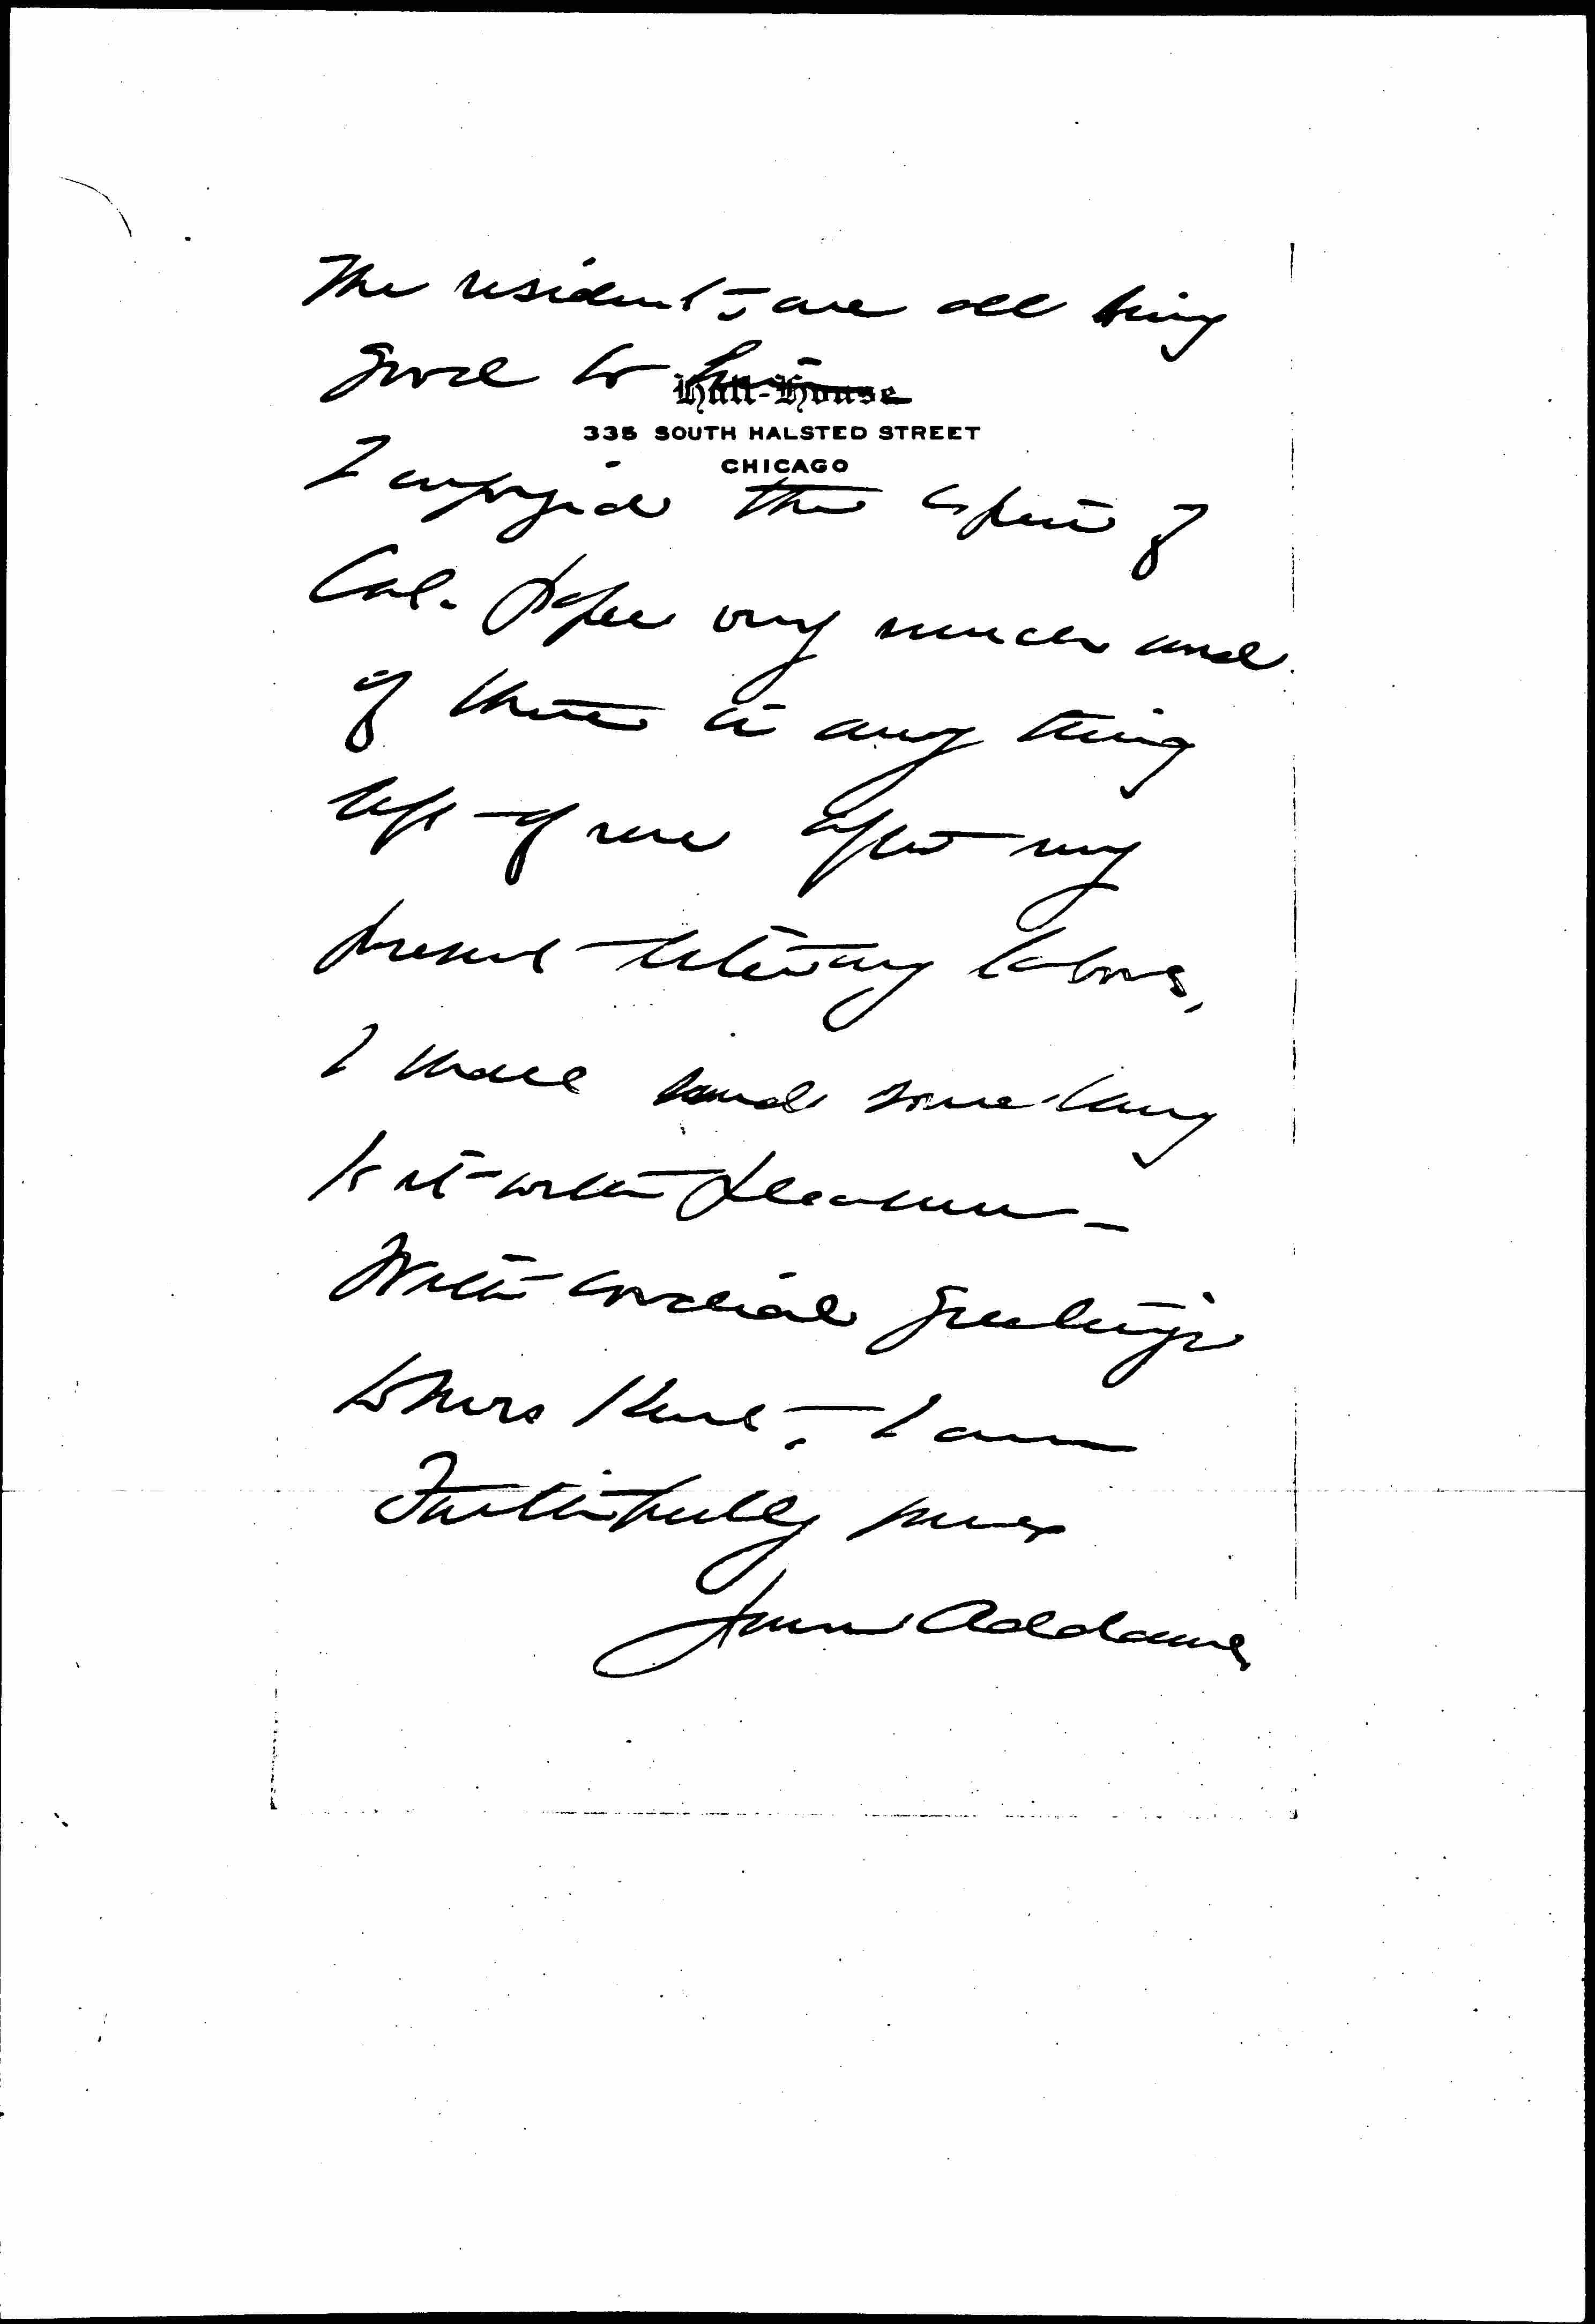 The residents are all being
good to him
Hull-House
335 SOUTH HALSTED STREET
CHICAGO
I enjoyed the spirit of
Cal. paper very much and
if there is any thing
left of me after my
present literary labors,
I shall send something
to it with pleasure –
With cordial greetings
to Mrs Kent, I am
Faithfully yours
Jane Addams